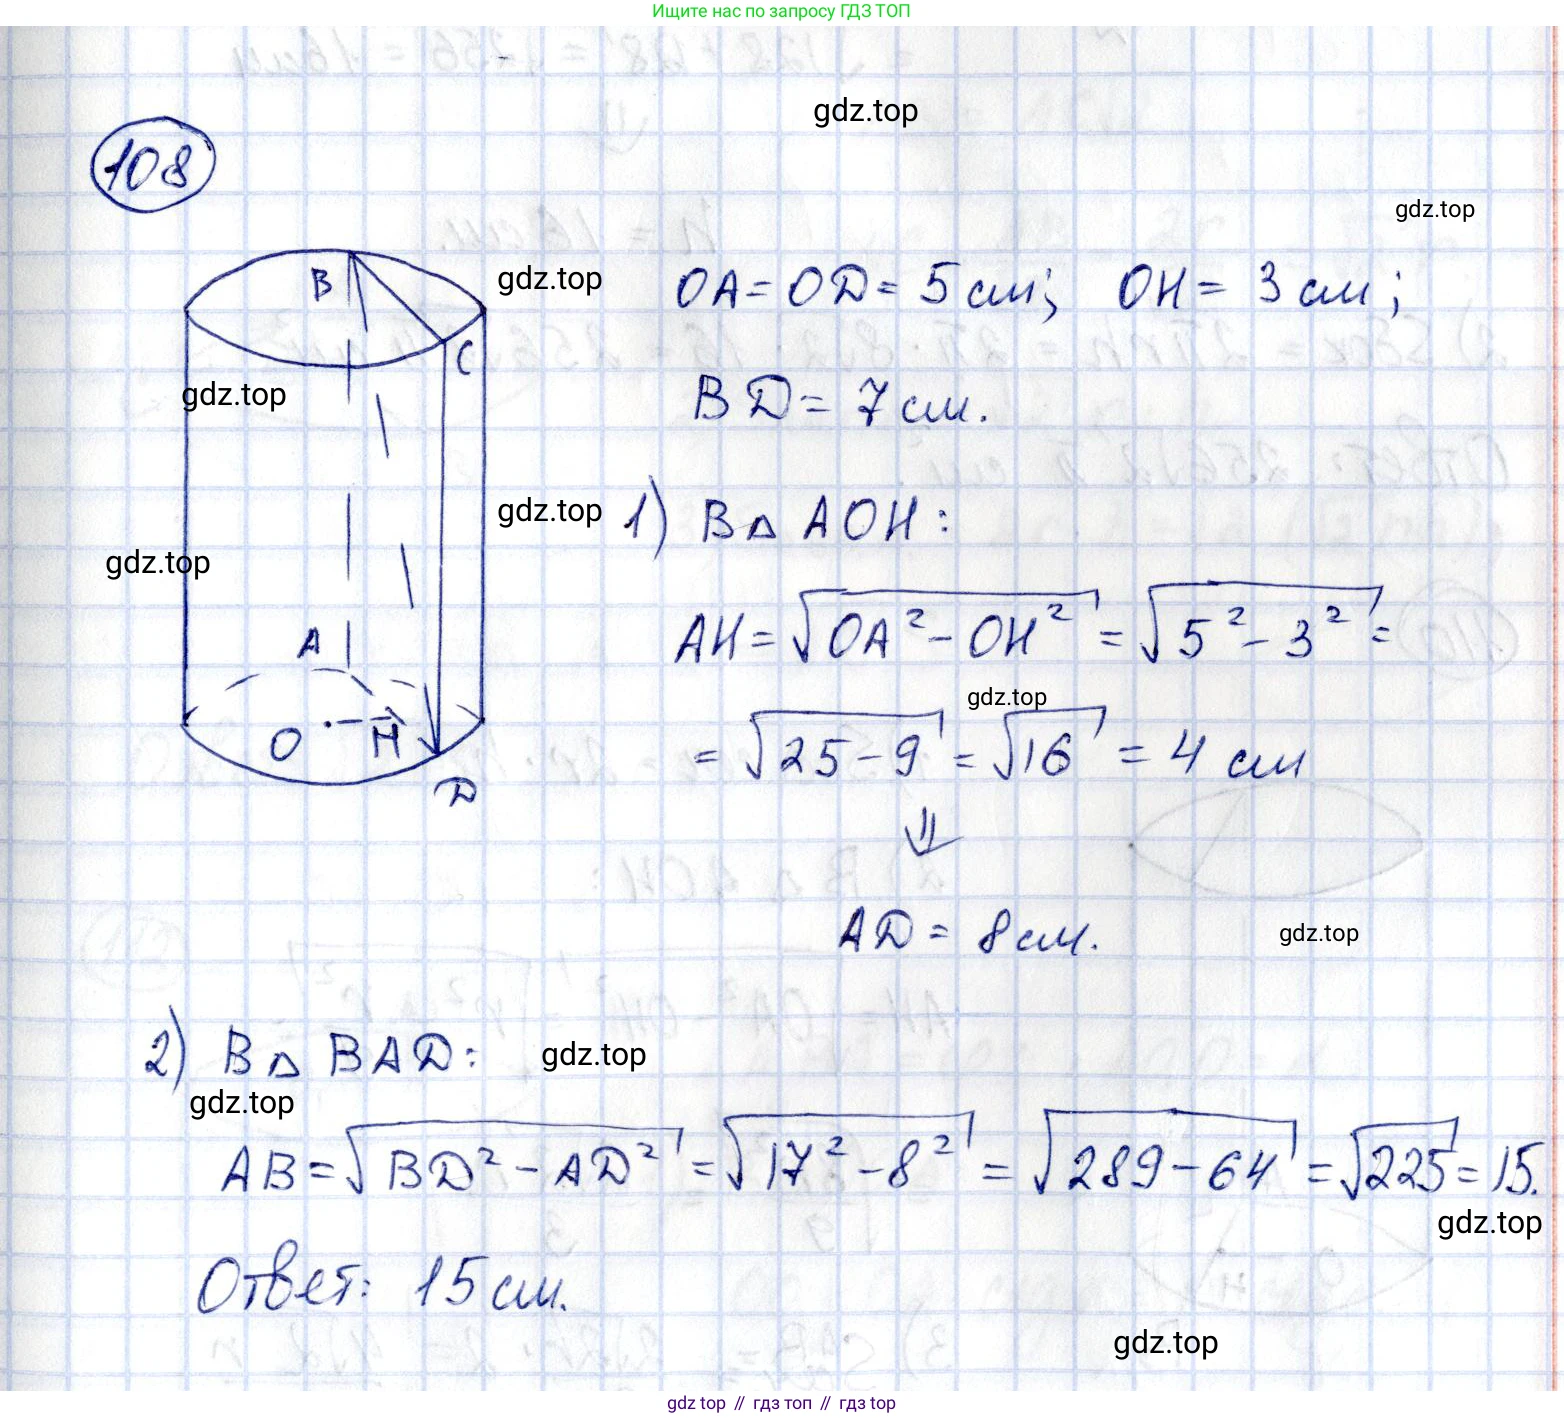 Ищите нас по запросу ГДЗ ТОП
gdz.top
108
gdz.top
B
gdz.top
OA = OD = 5 см; OH = 3 см;
C
gdz.top
BD = 7 см.
gdz.top
1) В △ AOH:
gdz.top
A
AH = √(OA² - OH²) = √(5² - 3²) =
gdz.top
O H
= √(25 - 9) = √16 = 4 см
D
⇓
AD = 8 см.
gdz.top
2) В △ BAD:
gdz.top
gdz.top
AB = √(BD² - AD²) = √(17² - 8²) = √(289 - 64) = √225 = 15.
gdz.top
Ответ: 15 см.
gdz.top
gdz top // гдз топ // гдз top